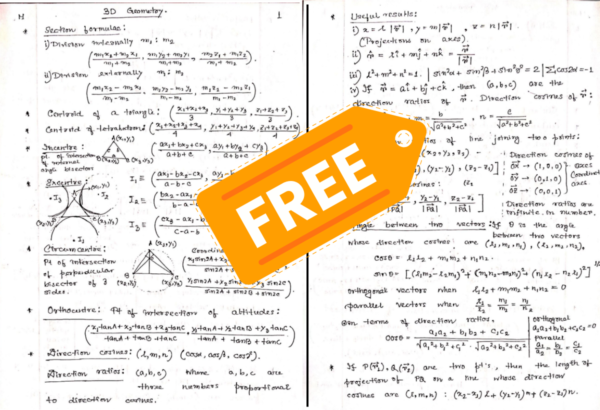 N
3D Geometry.
1
* Section formulas:
i) Division internally m₁ : m₂
(m₁x₂ + m₂x₁ / m₁+m₂ , m₁y₂ + m₂y₁ / m₁+m₂ , m₁z₂ + m₂z₁ / m₁+m₂)
ii) Division externally m₁ : m₂
(m₁x₂ - m₂x₁ / m₁-m₂ , m₁y₂ - m₂y₁ / m₁-m₂ , m₁z₂ - m₂z₁ / m₁-m₂)
* Centroid of a triangle: (x₁+x₂+x₃ / 3 , y₁+y₂+y₃ / 3 , z₁+z₂+z₃ / 3)
* Centroid of tetrahedron: (x₁+x₂+x₃+x₄ / 4 , y₁+y₂+y₃+y₄ / 4 , z₁+z₂+z₃+z₄ / 4)
* Incentre: A(x₁,y₁)
Pt. of intersection of internal angle bisector
(ax₁+bx₂+cx₃ / a+b+c , ay₁+by₂+cy₃ / a+b+c)
* Excentre:
I₁ ≡ (ax₁-bx₂-cx₃ / a-b-c
I₂ ≡
b-a-c
I₃ ≡
c-a-b
* Circumcentre: A(x₁,y₁)
Pt of intersection
of perpendicular
bisector of 3
sides.
* Orthocentre: Pt of intersection of altitudes:
(x₁tanA + x₂tanB + x₃tanC / tanA + tanB + tanC , y₁tanA + y₂tanB + y₃tanC / tanA + tanB + tanC)
* Direction cosines: (l, m, n) (cosα, cosβ, cosγ).
Direction ratios: (a, b, c) where a, b, c are
three numbers proportional
to direction cosines.
* Useful results:
i) x = l |r⃗| , y = m|r⃗| , z = n|r⃗|
(Projections on axes).
ii) r̂ = lî + mĵ + nk̂ = r⃗ / |r⃗|
iii) l²+m²+n²=1. | sin²α + sin²β + sin²γ = 2 | Σcos2α = -1
iv) If r⃗ = aî + bĵ + ck̂, then (a,b,c) are the
direction ratios of r⃗. Direction cosines of r⃗:
m = b / √a²+b²+c² , n = c / √a²+b²+c²
of line joining two points:
Direction cosines of
OX → (1,0,0)
OY → (0,1,0)
OZ → (0,0,1)
axes
Direction ratios are
infinite in number.
FREE
angle between two vectors: If θ is the angle
between two vectors
whose direction cosines are (l₁, m₁, n₁) , (l₂, m₂, n₂),
cosθ = l₁l₂ + m₁m₂ + n₁n₂
sinθ = [(l₁m₂ - l₂m₁)² + (m₁n₂ - m₂n₁)² + (n₁l₂ - n₂l₁)²]
orthogonal vectors when l₁l₂ + m₁m₂ + n₁n₂ = 0
parallel vectors when l₁/l₂ = m₁/m₂ = n₁/n₂
In terms of direction ratios,
cosθ = a₁a₂ + b₁b₂ + c₁c₂ / √a₁²+b₁²+c₁² · √a₂²+b₂²+c₂²
orthogonal
a₁a₂+b₁b₂+c₁c₂=0
parallel
a₁/a₂ = b₁/b₂ = c₁/c₂
* If P(r⃗₁), Q(r⃗₂) are two pt's, then the length of
projection of PQ on a line whose direction
cosines are (l,m,n) : (x₂-x₁)l + (y₂-y₁)m + (z₂-z₁)n.